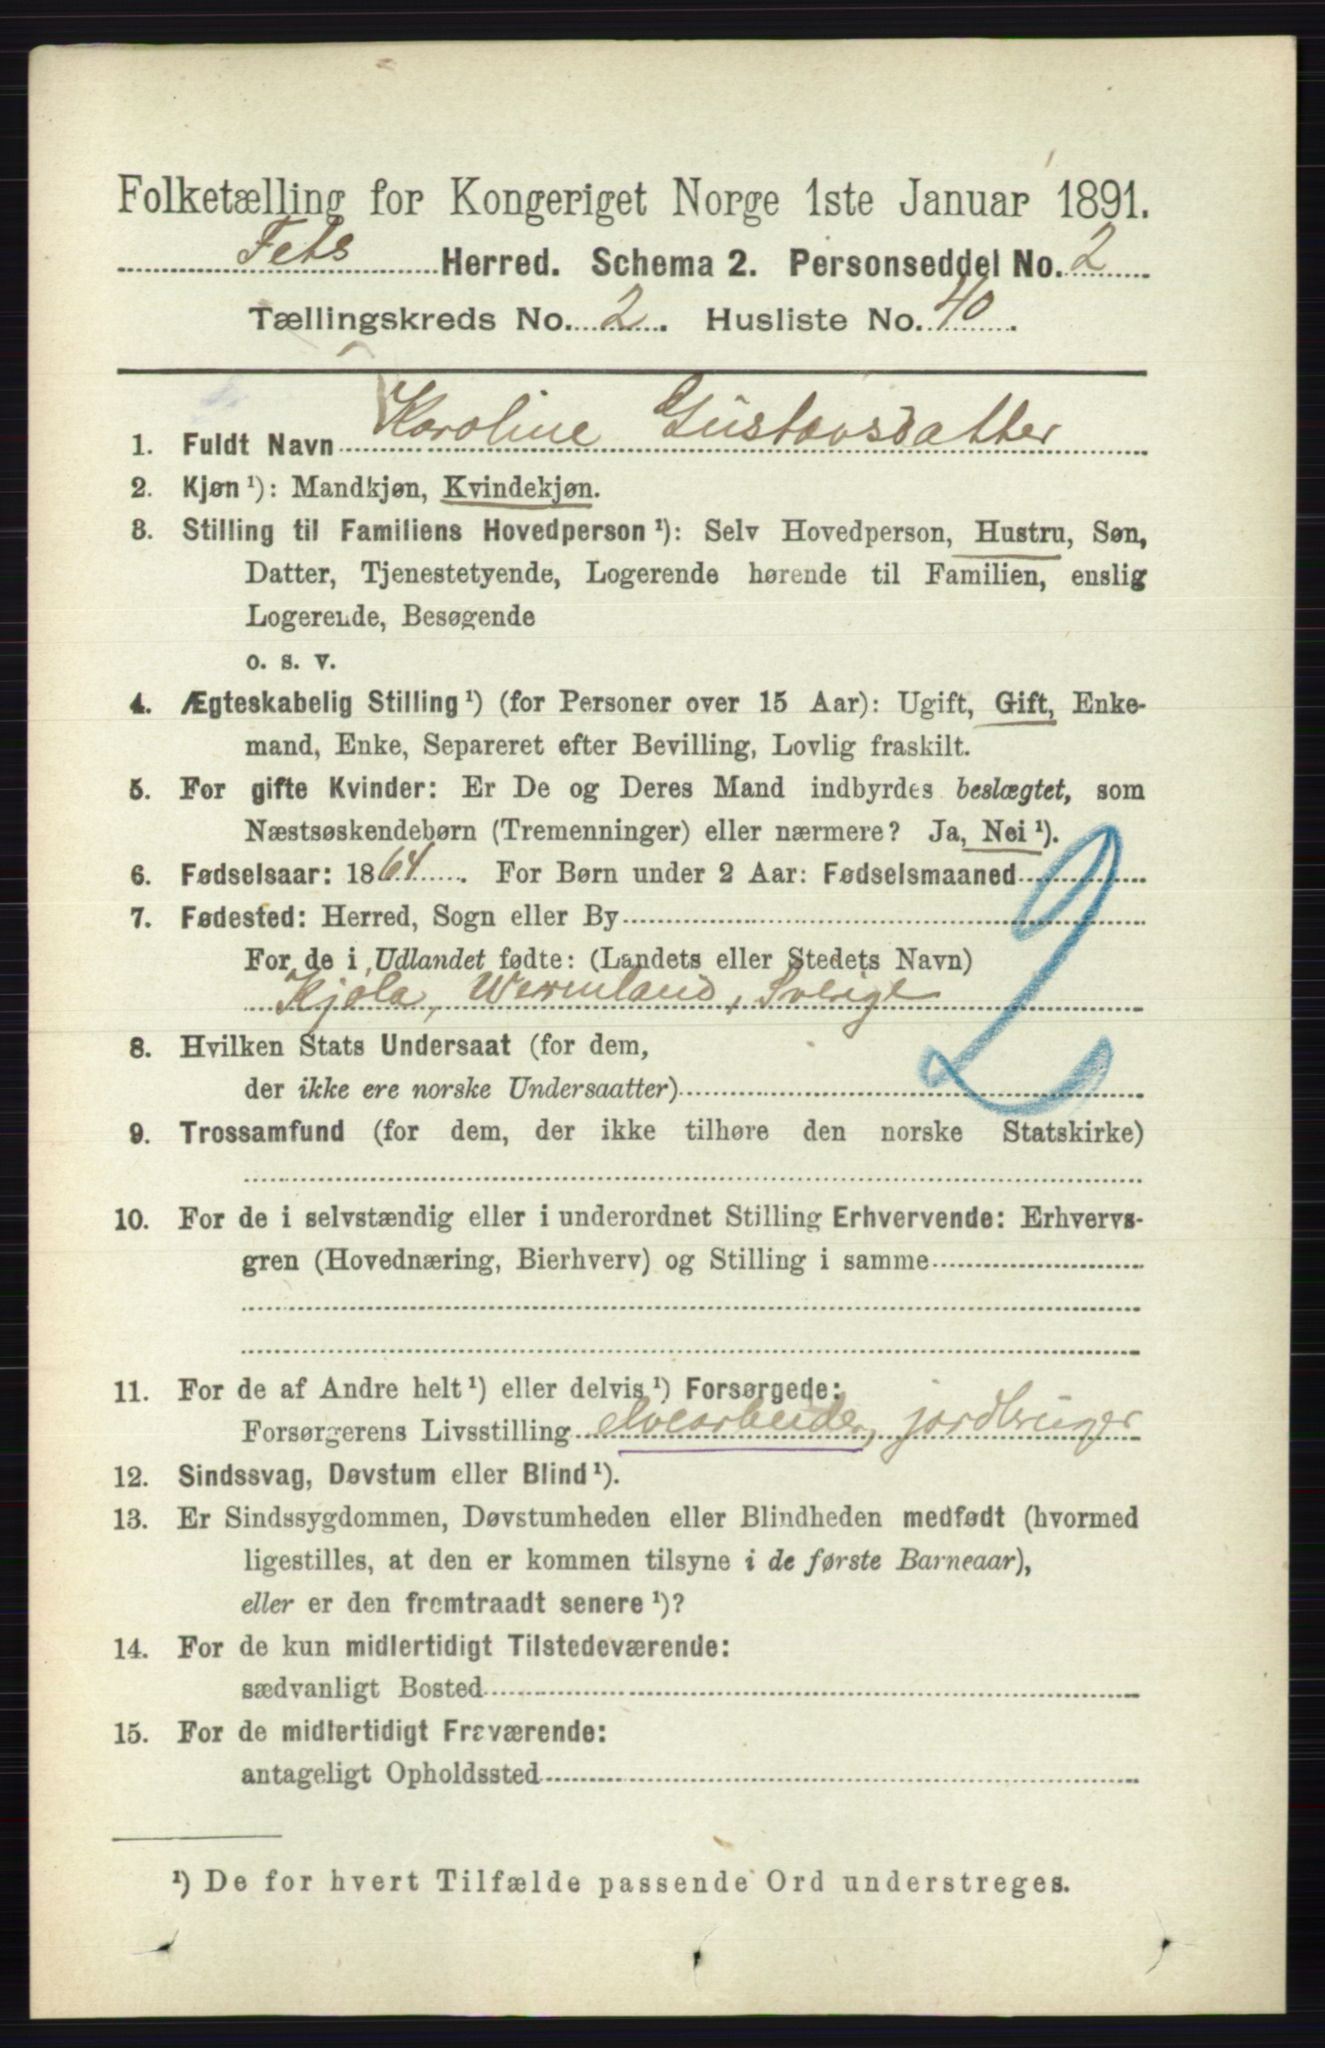 Folketælling for Kongeriget Norge 1ste Januar 1891.
Fets Herred. Schema 2. Personseddel No. 2
Tællingskreds No. 2. Husliste No. 40.
1. Fuldt Navn Karoline Gustavsdatter
2. Kjøn¹): Mandkjøn, Kvindekjøn.
3. Stilling til Familiens Hovedperson¹): Selv Hovedperson, Hustru, Søn,
Datter, Tjenestetyende, Logerende hørende til Familien, enslig
Logerende, Besøgende
o. s. v.
4. Ægteskabelig Stilling¹) (for Personer over 15 Aar): Ugift, Gift, Enke-
mand, Enke, Separeret efter Bevilling, Lovlig fraskilt.
5. For gifte Kvinder: Er De og Deres Mand indbyrdes beslægtet, som
Næstsøskendebørn (Tremenninger) eller nærmere? Ja, Nei¹).
6. Fødselsaar: 1864. For Børn under 2 Aar: Fødselsmaaned
7. Fødested: Herred, Sogn eller By
For de i Udlandet fødte: (Landets eller Stedets Navn)
Kjøla, Wermland, Sverige
2
8. Hvilken Stats Undersaat (for dem,
der ikke ere norske Undersaatter)
9. Trossamfund (for dem, der ikke tilhøre den norske Statskirke)
10. For de i selvstændig eller i underordnet Stilling Erhvervende: Erhvervs-
gren (Hovednæring, Bierhverv) og Stilling i samme
11. For de af Andre helt¹) eller delvis¹) Forsørgede:
Forsørgerens Livsstilling elvearbeider, jordbruger
12. Sindssvag, Døvstum eller Blind¹).
13. Er Sindssygdommen, Døvstumheden eller Blindheden medfødt (hvormed
ligestilles, at den er kommen tilsyne i de første Barneaar),
eller er den fremtraadt senere¹)?
14. For de kun midlertidigt Tilstedeværende:
sædvanligt Bosted
15. For de midlertidigt Fraværende:
antageligt Opholdssted
¹) De for hvert Tilfælde passende Ord understreges.